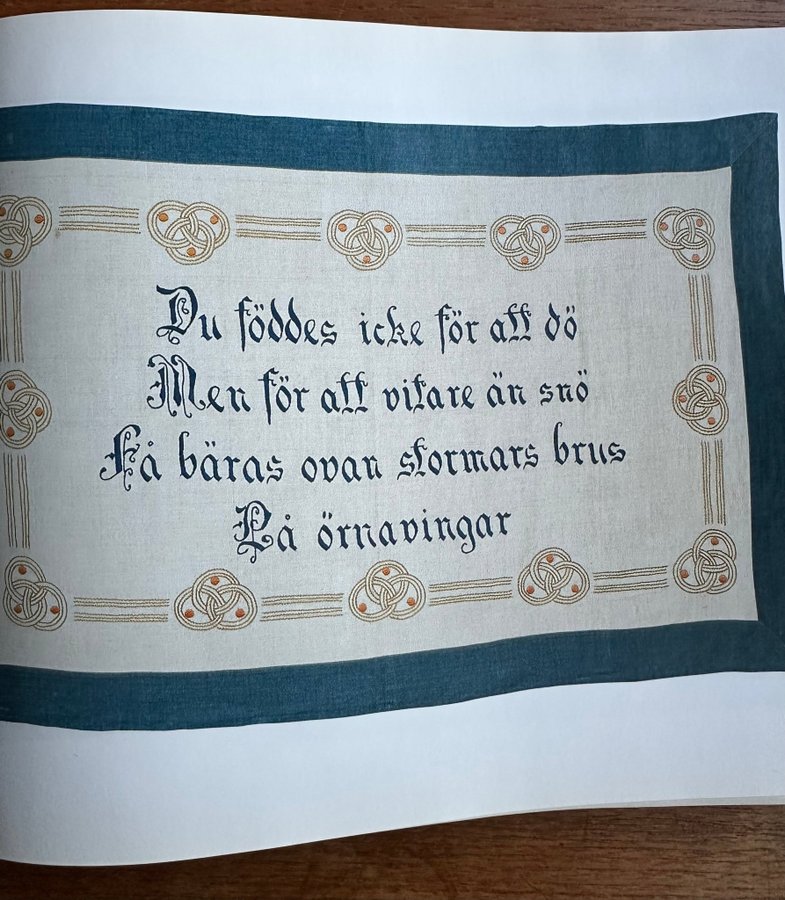 Du föddes icke för att dö
Men för att vitare än snö
Få bäras ovan stormars brus
På örnavingar